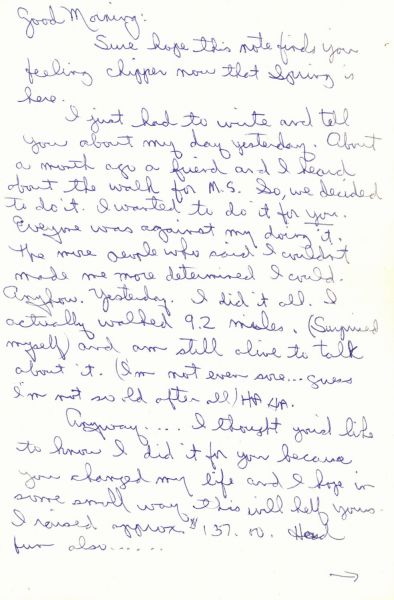 Good Morning:
Sure hope this note finds you
feeling chipper now that Spring is
here.
I just had to write and tell
you about my day yesterday. About
a month ago a friend and I heard
about the walk for M.S. So, we decided
to do it. I wanted to do it for you.
Everyone was against my doing it.
The more people who said I couldn't
made me more determined I could.
Anyhow. Yesterday. I did it all. I
actually walked 9.2 miles. (Surprised
myself) and am still alive to talk
about it. (I'm not even sore... guess
I'm not so old after all) HA HA.
Anyway.... I thought you'd like
to know I did it for you because
you changed my life and I hope in
some small way this will help yours.
I raised approx $137.00. Had
fun also......
→